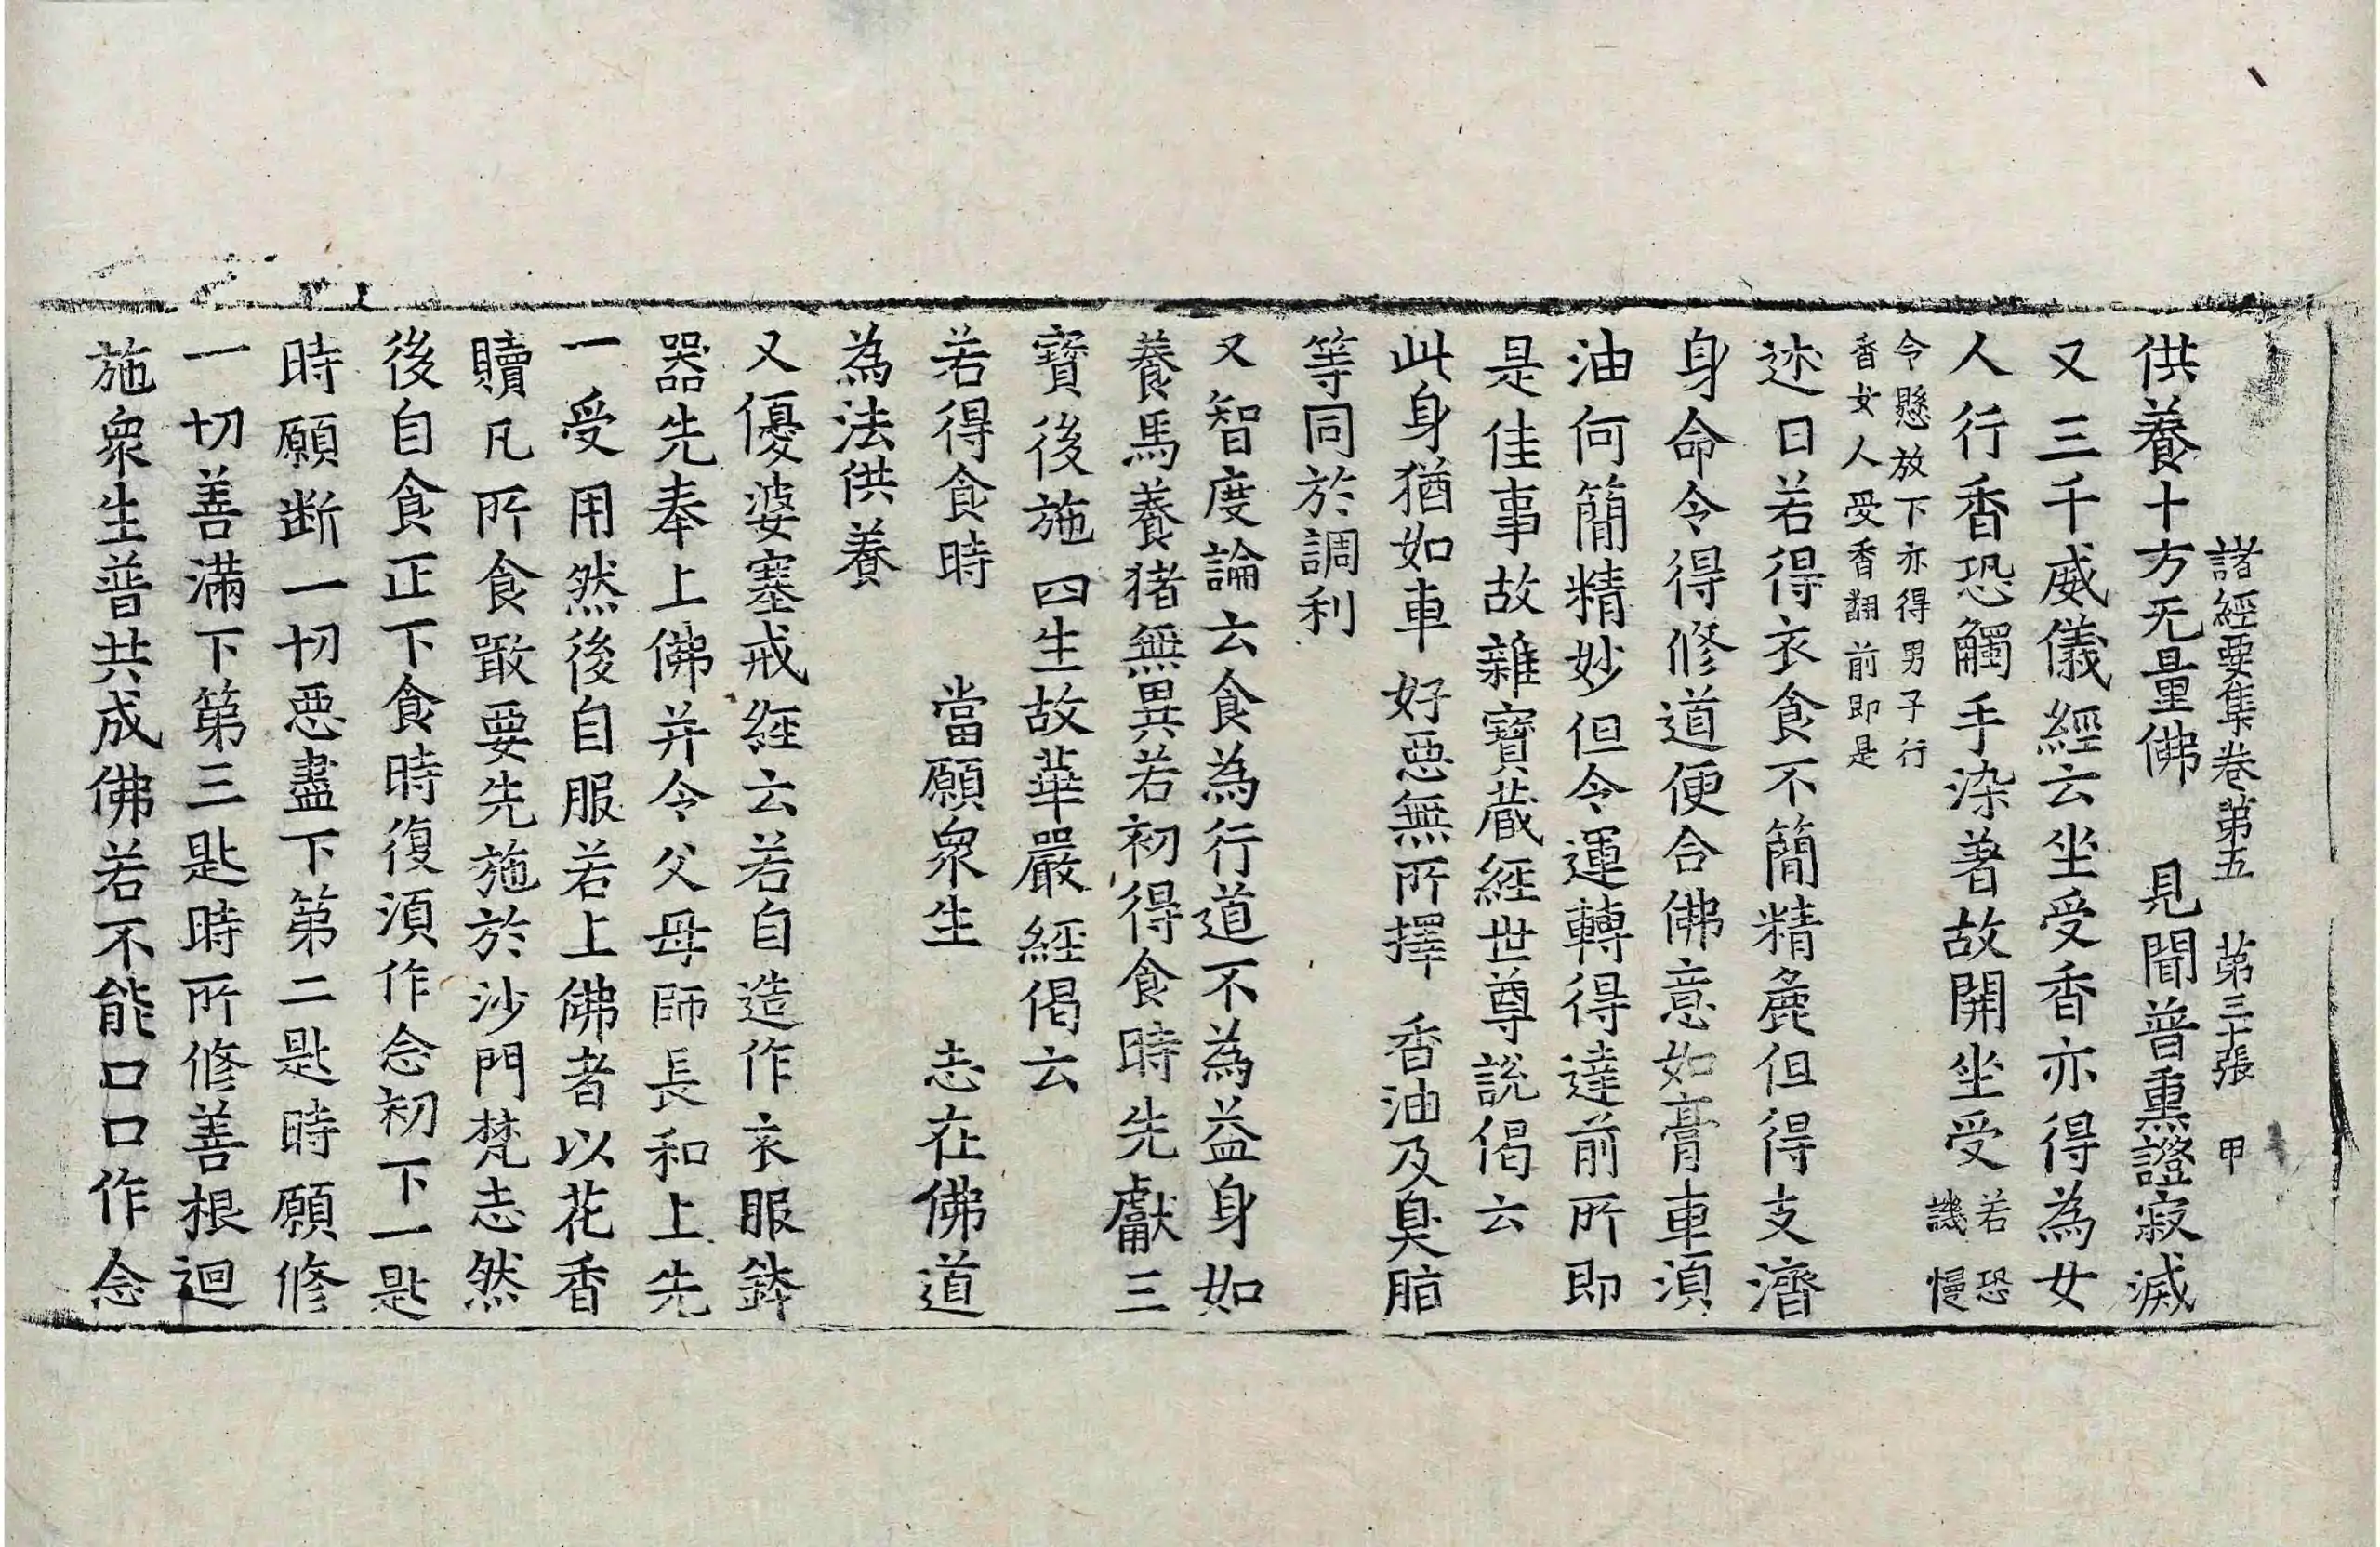 諸經要集卷第五　第三十張　甲
供養十方无量佛　見聞普熏證寂滅
又三千威儀經云坐受香亦得為女
人行香恐觸手染著故開坐受若恐
譏慢
令懸放下亦得男子行
香女人受香翻前即是
述曰若得衣食不簡精麁但得支濟
身命令得修道便合佛意如膏車湏
油何簡精妙但令運轉得達前所即
是佳事故雜寶藏經世尊說偈云
此身猶如車　好惡無所擇　香油及臭脂
等同於調利
又智度論云食為行道不為益身如
養馬養猪無異若初得食時先獻三
寶後施四生故華嚴經偈云
若得食時　當願衆生　志在佛道
為法供養
又優婆塞戒經云若自造作衣服鉢
器先奉上佛并令父母師長和上先
一受用然後自服若上佛者以花香
贖凡所食噉要先施於沙門梵志然
後自食正下食時復湏作念初下一匙
時願断一切惡盡下第二匙時願修
一切善滿下第三匙時所修善根迴
施衆生普共成佛若不能口口作念